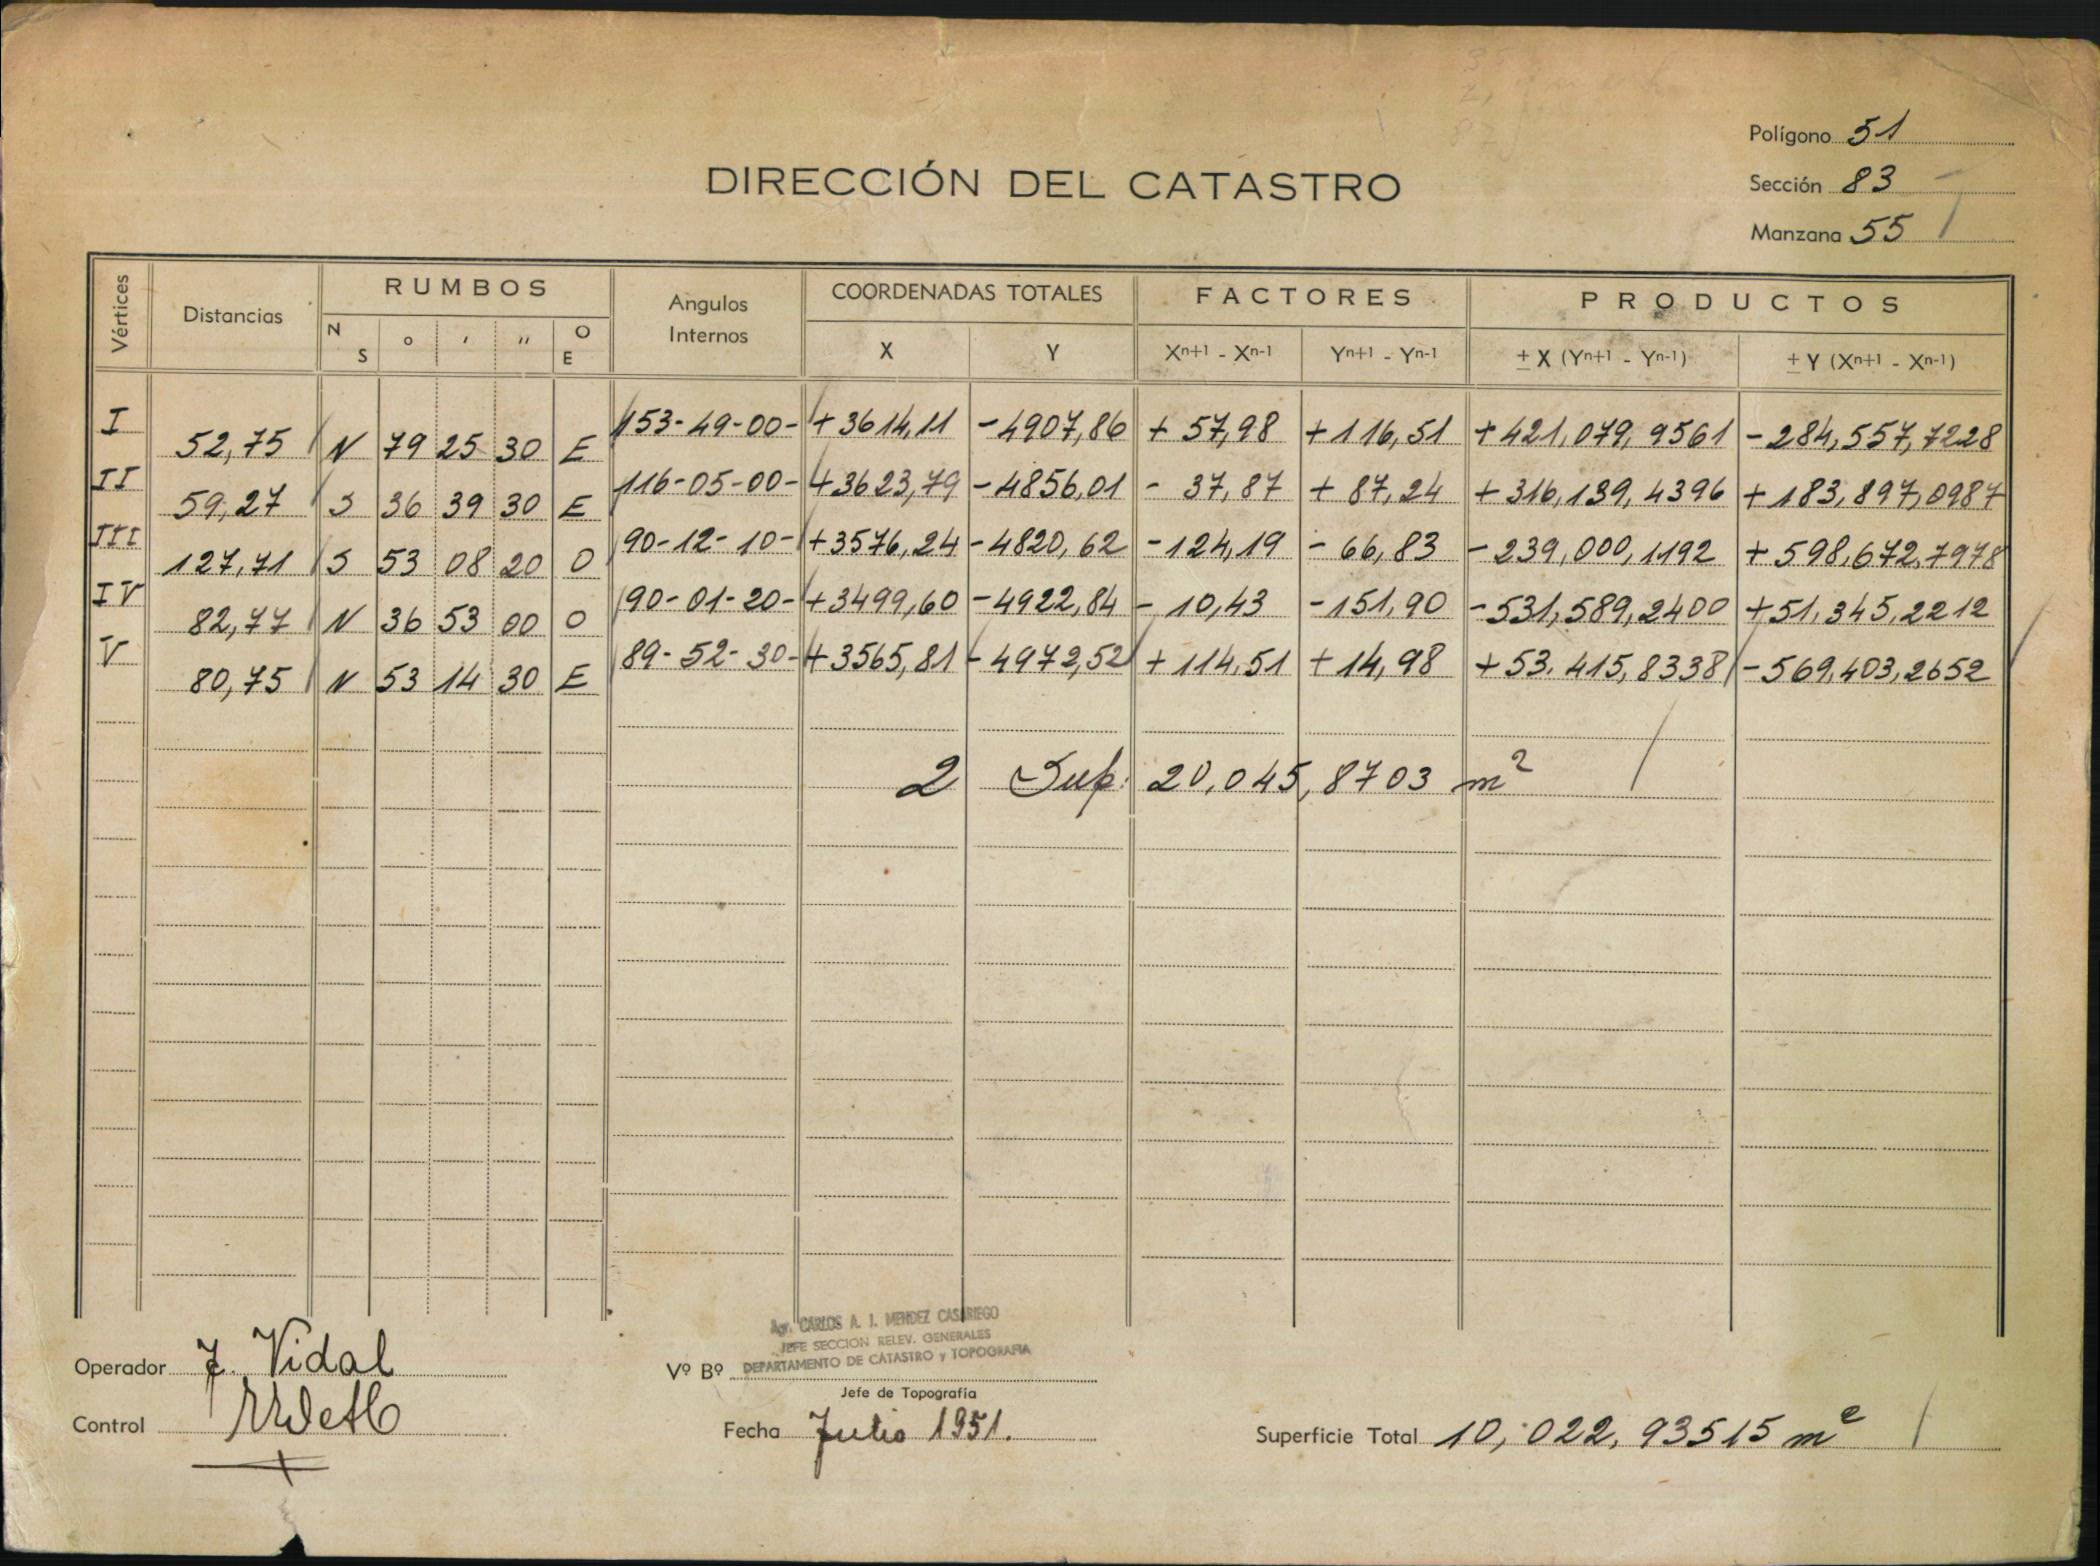 Polígono 51
DIRECCIÓN DEL CATASTRO
Sección 83
Manzana 55
Vértices Distancias RUMBOS Angulos Internos COORDENADAS TOTALES FACTORES PRODUCTOS
N S ° ′ ″ O E X Y Xn+1 - Xn-1 Yn+1 - Yn-1 ± X (Yn+1 - Yn-1) ± Y (Xn+1 - Xn-1)
I 153-49-00- +3614,11 -4907,86 + 57,98 +116,51 +421,079,9561 -284,557,7228
52,75 N 79 25 30 E
II 116-05-00- +3623,79 -4856,01 - 37,87 + 87,24 +316,139,4396 +183,897,0987
59,27 S 36 39 30 E
III 90-12-10- +3576,24 -4820,62 -124,19 - 66,83 -239,000,1192 +598,672,7978
127,71 S 53 08 20 O
IV 90-01-20- +3499,60 -4922,84 - 10,43 -151,90 -531,589,2400 +51,345,2212
82,77 N 36 53 00 O
V 89-52-30- +3565,81 -4972,52 +114,51 +14,98 +53.415,8338 -569,403,2652
80,75 N 53 14 30 E
2 Sup: 20,045,8703 m²
Agr. CARLOS A. J. MENDEZ CASARIEGO
JEFE SECCION RELEV. GENERALES
DEPARTAMENTO DE CATASTRO y TOPOGRAFIA
Operador J. Vidal
Vº Bº
Jefe de Topografía
Control
Fecha Julio 1951.
Superficie Total 10,022,93515 m²